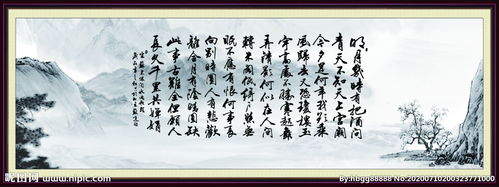 明月幾时有把酒问
青天不知天上宫阙
今夕是何年我欲乘
风歸去又恐瓊楼玉
宇高處不勝寒起舞
弄清影何似在人间
转朱阁低绮户照無眠
不應有恨何事長
向别時圆人有悲歡
離合月有陰晴圆缺
此事古難全但願人
長久千里共婵娟
昵图网 www.nipic.com
By:hbgg88888 No:20200710200323771000